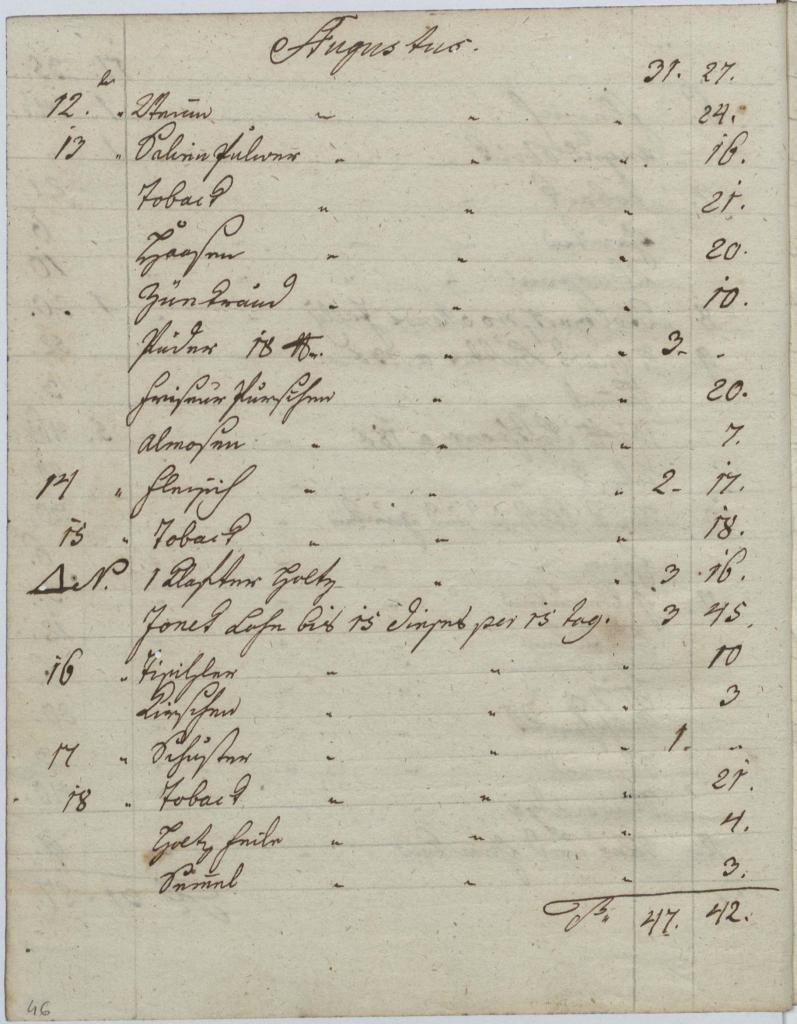 Augustus.
31. 27.
12. " " " " 24.
13 " Pulver " " " 16.
Toback " " " 21.
Haasen " " " 20.
Zünkraud " " " 10.
Puder 18 ℔. " " 3- -
Friseur Purschen " " 20.
Almosen " " " 7.
14 " Fleisch " " " 2- 17.
15 " Toback " " " 18.
Δ N. 1 Klafter Holtz " " 3 16.
Lohn bis 15 dieses per 15 tag. 3 45.
16 " Tischler " " " 10
Kirschen " " " 3
17 " Schuster " " " 1. "
18 " Toback " " " 21.
Holtz Feile " " " 4.
Sem̄el " " " 3.
47. 42.
46